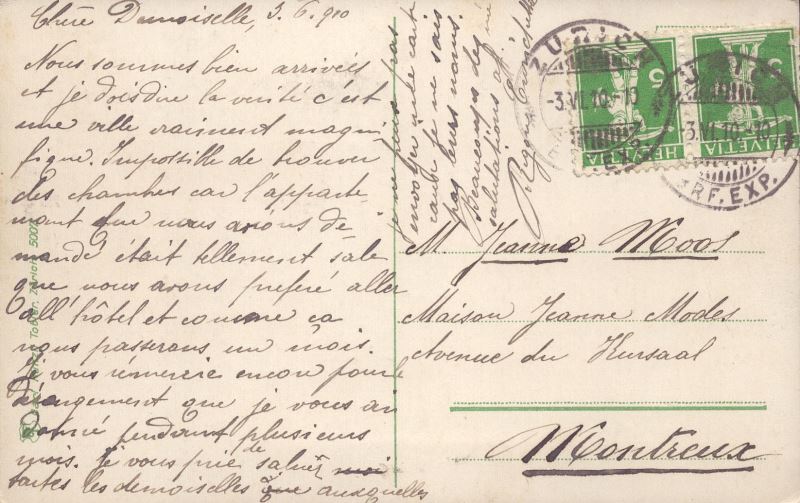 Chère Demoiselle, 3.6.910
Nous sommes bien arrivées
et je dois dire la verité c'est
une ville vraiment magni
fique. Impossible de trouver
des chambres car l'apparte-
mant que nous avions de-
mandé était tellement sale
que nous avons preferé aller
all'hôtel et comme ça
nous passerons un mois.
Je vous remercie encore pour le
dérangement que je vous ai
donné pendant plusieurs
mois. Je vous prie de saluer
toutes les demoiselles auxquelles
je ne peux pas
envoyer une carte
car je ne sais
pas leurs noms.
Beaucoup des
salutations
ZÜRICH
-3.VI.10.-10
BRF. EXP.
HELVETIA
5
ZÜRICH
-3.VI.10.-10
BRF. EXP.
HELVETIA
5
M. Jeanne Moos
Maison Jeanne Modes
Avenue du Kursaal
Montreux